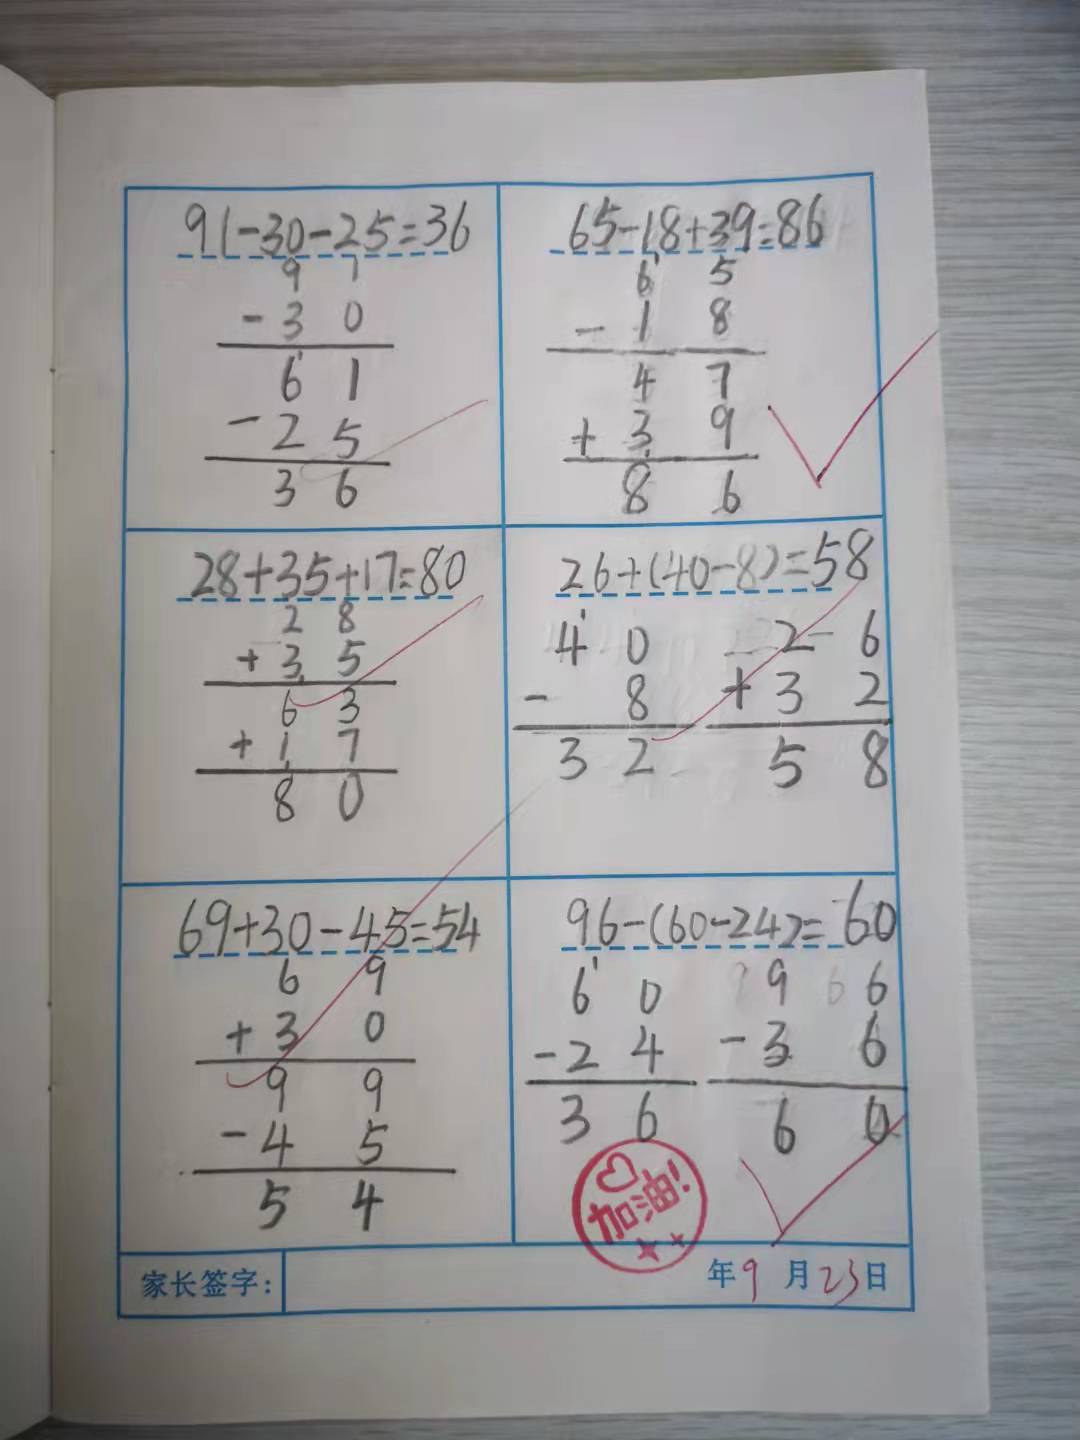 91-30-25=36
9 1
- 3 0
6 1
- 2 5
3 6
65-18+39=86
6 5
- 1 8
4 7
+ 3 9
8 6
28+35+17=80
2 8
+ 3 5
6 3
+ 1 7
8 0
26+(40-8)=58
4 0
- 8
3 2
2 6
+ 3 2
5 8
69+30-45=54
6 9
+ 3 0
9 9
- 4 5
5 4
96-(60-24)=60
6 0
- 2 4
3 6
9 6
- 3 6
6 0
加油!
家长签字:
年9月23日